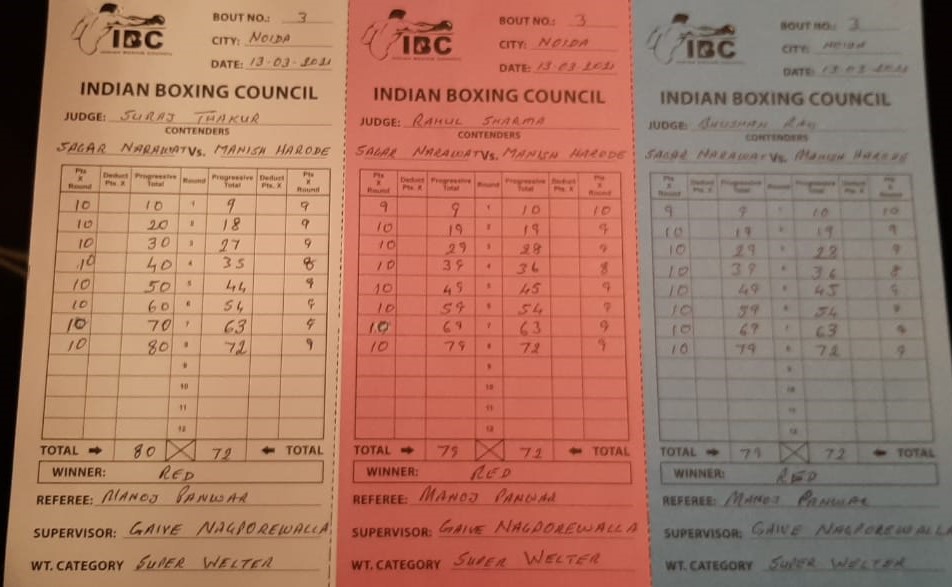 IBC
INDIAN BOXING COUNCIL
BOUT NO.: 3
CITY: NOIDA
DATE: 13-03-2021
INDIAN BOXING COUNCIL
JUDGE: SURAJ THAKUR
CONTENDERS
SAGAR NARAWAT Vs. MANISH HARODE
Pts X Round Deduct Pts. X Progressive Total Round Progressive Total Deduct Pts. X Pts X Round
10 10 1 9 9
10 20 2 18 9
10 30 3 27 9
10 40 4 35 8
10 50 5 44 9
10 60 6 54 9
10 70 7 63 9
10 80 8 72 9
9
10
11
12
TOTAL 80 72 TOTAL
WINNER: RED
REFEREE: MANOJ PANWAR
SUPERVISOR: GAIVE NAGPOREWALLA
WT. CATEGORY SUPER WELTER
IBC
BOUT NO.: 3
CITY: NOIDA
DATE: 13-03-2021
INDIAN BOXING COUNCIL
JUDGE: RAHUL SHARMA
CONTENDERS
SAGAR NARAWAT Vs. MANISH HARODE
Pts X Round Deduct Pts. X Progressive Total Round Progressive Total Deduct Pts. X Pts X Round
9 9 1 10 10
10 19 2 19 9
10 29 3 28 9
10 39 4 36 8
10 49 5 45 9
10 59 6 54 9
10 69 7 63 9
10 79 8 72 9
9
10
11
12
TOTAL 79 72 TOTAL
WINNER: RED
REFEREE: MANOJ PANWAR
SUPERVISOR: GAIVE NAGPOREWALLA
WT. CATEGORY SUPER WELTER
IBC
BOUT NO.: 3
CITY: NOIDA
DATE: 13-03-2021
INDIAN BOXING COUNCIL
JUDGE: BHUSHAN RAO
CONTENDERS
SAGAR NARAWAT Vs. MANISH HARODE
Pts X Round Deduct Pts. X Progressive Total Round Progressive Total Deduct Pts. X Pts X Round
9 9 1 10 10
10 19 2 19 9
10 29 3 28 9
10 39 4 36 8
10 49 5 45 9
10 59 6 54 9
10 69 7 63 9
10 79 8 72 9
9
10
11
12
TOTAL 79 72 TOTAL
WINNER: RED
REFEREE: MANOJ PANWAR
SUPERVISOR: GAIVE NAGPOREWALLA
WT. CATEGORY SUPER WELTER